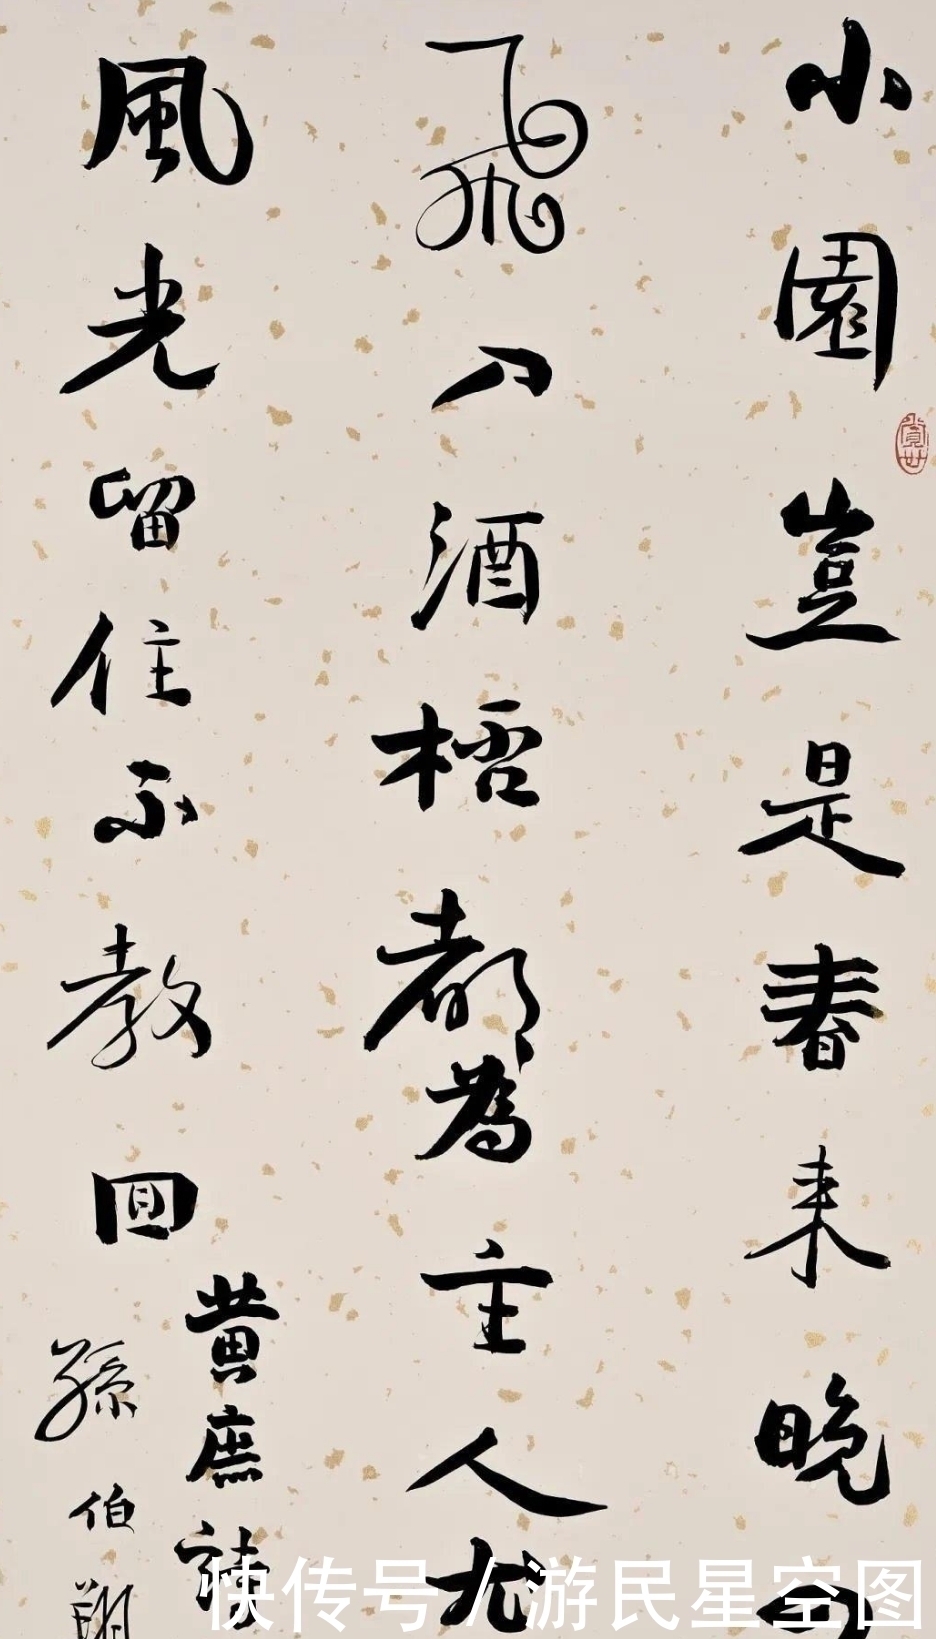 小園豈是春来晚四
飛入酒桮都為主人尤
風光留住不教回
黄庶詩
孫伯翔
覺世
快传号/游民星空图